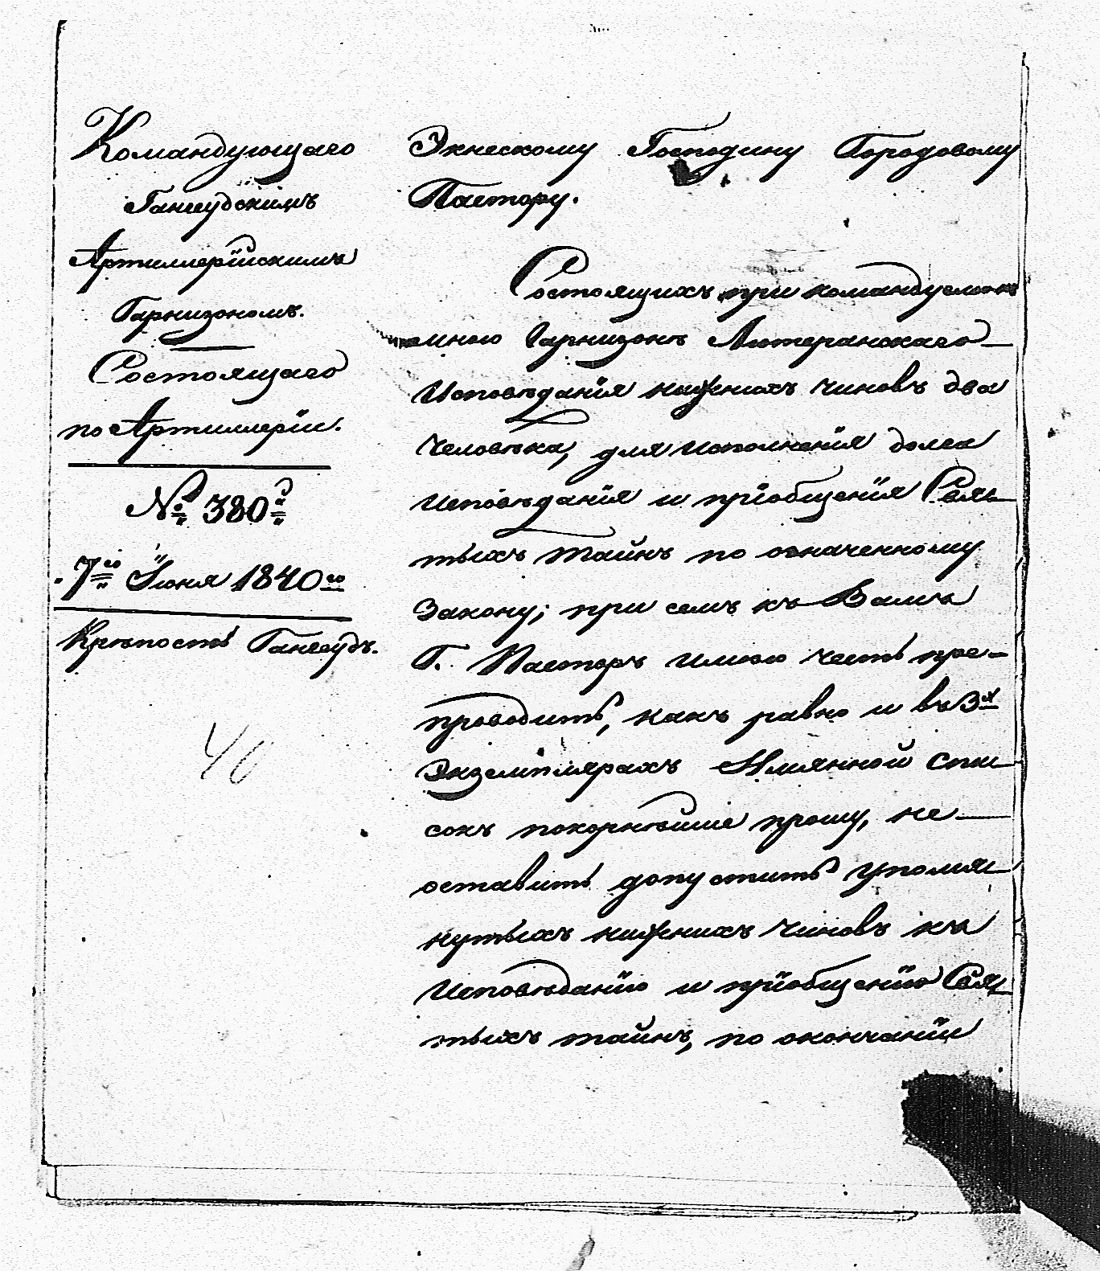 Командующаго
Гангеудскимъ
Артиллерійскимъ
Гарнизономъ.
Состоящаго
по Артиллеріи.
№ 380й
7го Іюня 1840го
Крѣпость Гангеудъ.
40
Экнескому Господину Городовому
Пастору.
Состоящихъ при командуемомъ
мною Гарнизонѣ Лютеранскаго
Исповѣданія нижнихъ чиновъ два
человѣка, для исполненія долга
Исповѣданія и пріобщенія Свя-
тыхъ таинъ по означенному
Закону; при семъ къ Вамъ
Г. Пасторъ имѣю честь пре-
проводить, какъ равно и въ 3х
Экземплярахъ Имянной спи-
сокъ покорнѣйше прошу, не
оставить допустить упомя-
нутыхъ нижнихъ чиновъ къ
Исповѣданію и пріобщенію Свя-
тыхъ таинъ, по окончаніи